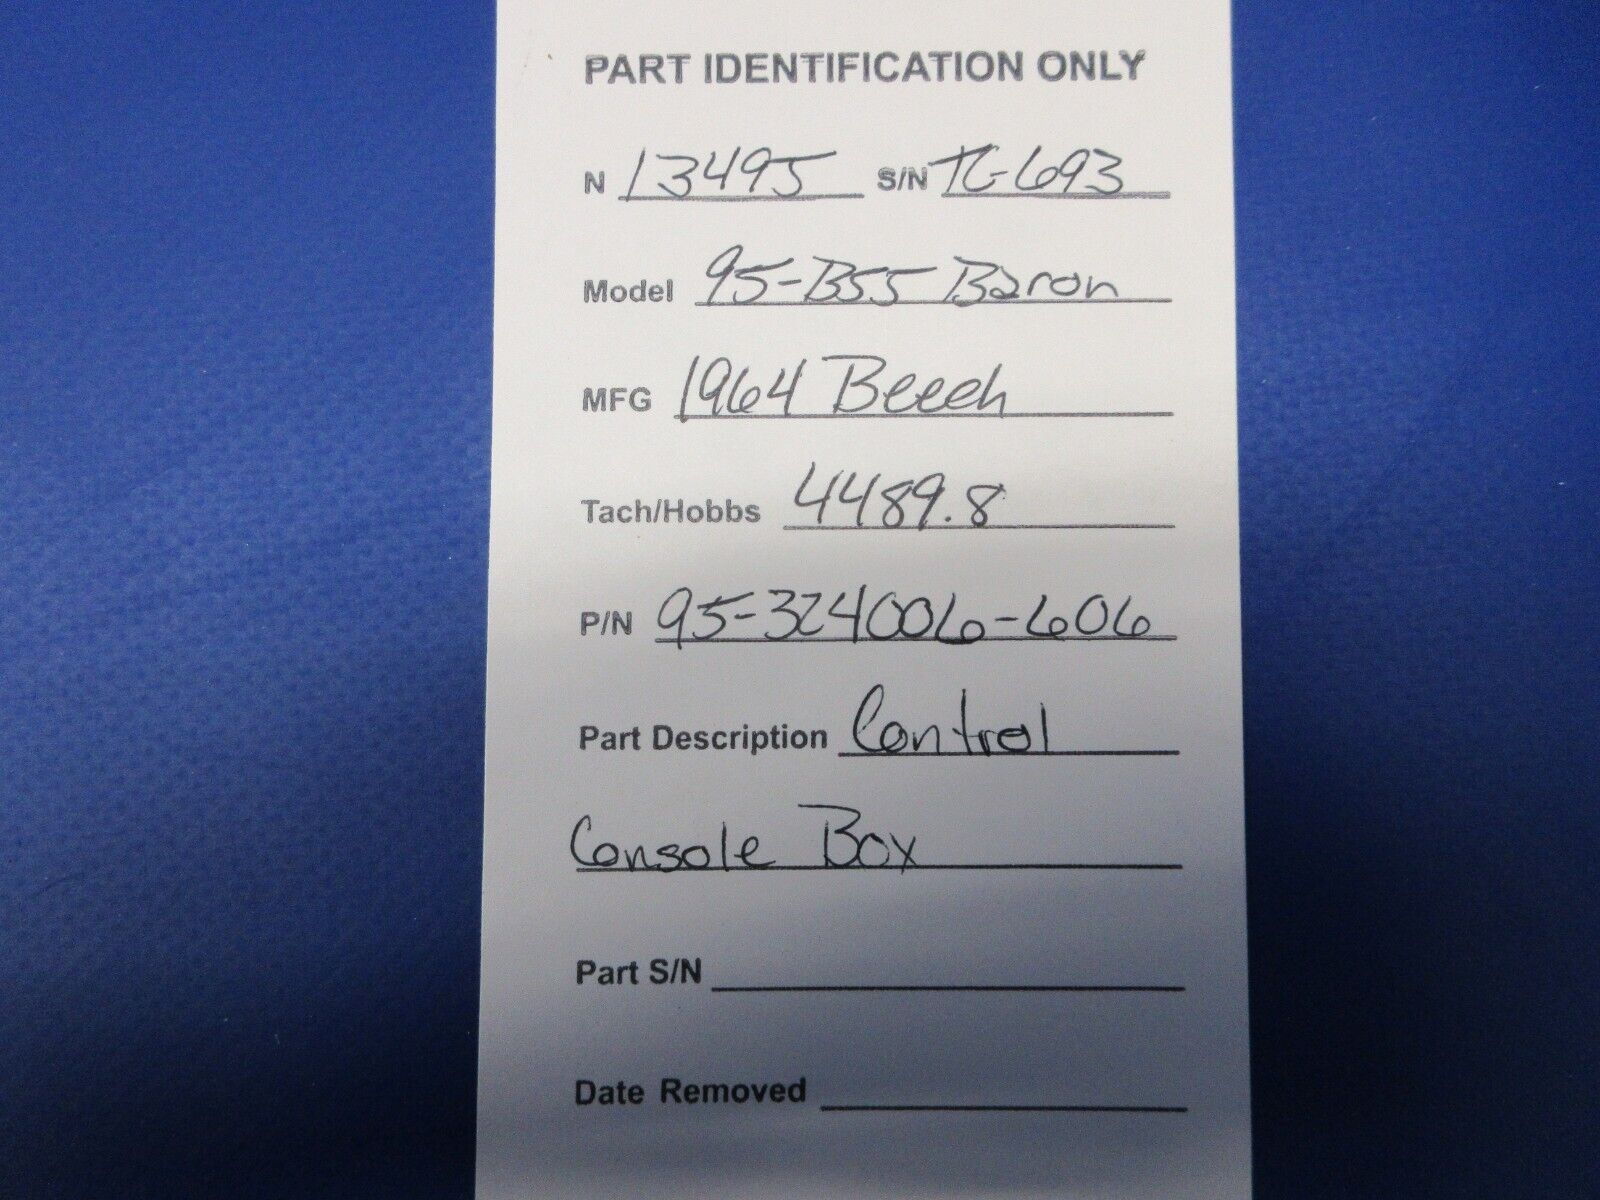 PART IDENTIFICATION ONLY
N 13495 S/N TC-693
Model 95-B55 Baron
MFG 1964 Beech
Tach/Hobbs 4489.8
P/N 95-324006-606
Part Description Control
Console Box
Part S/N
Date Removed